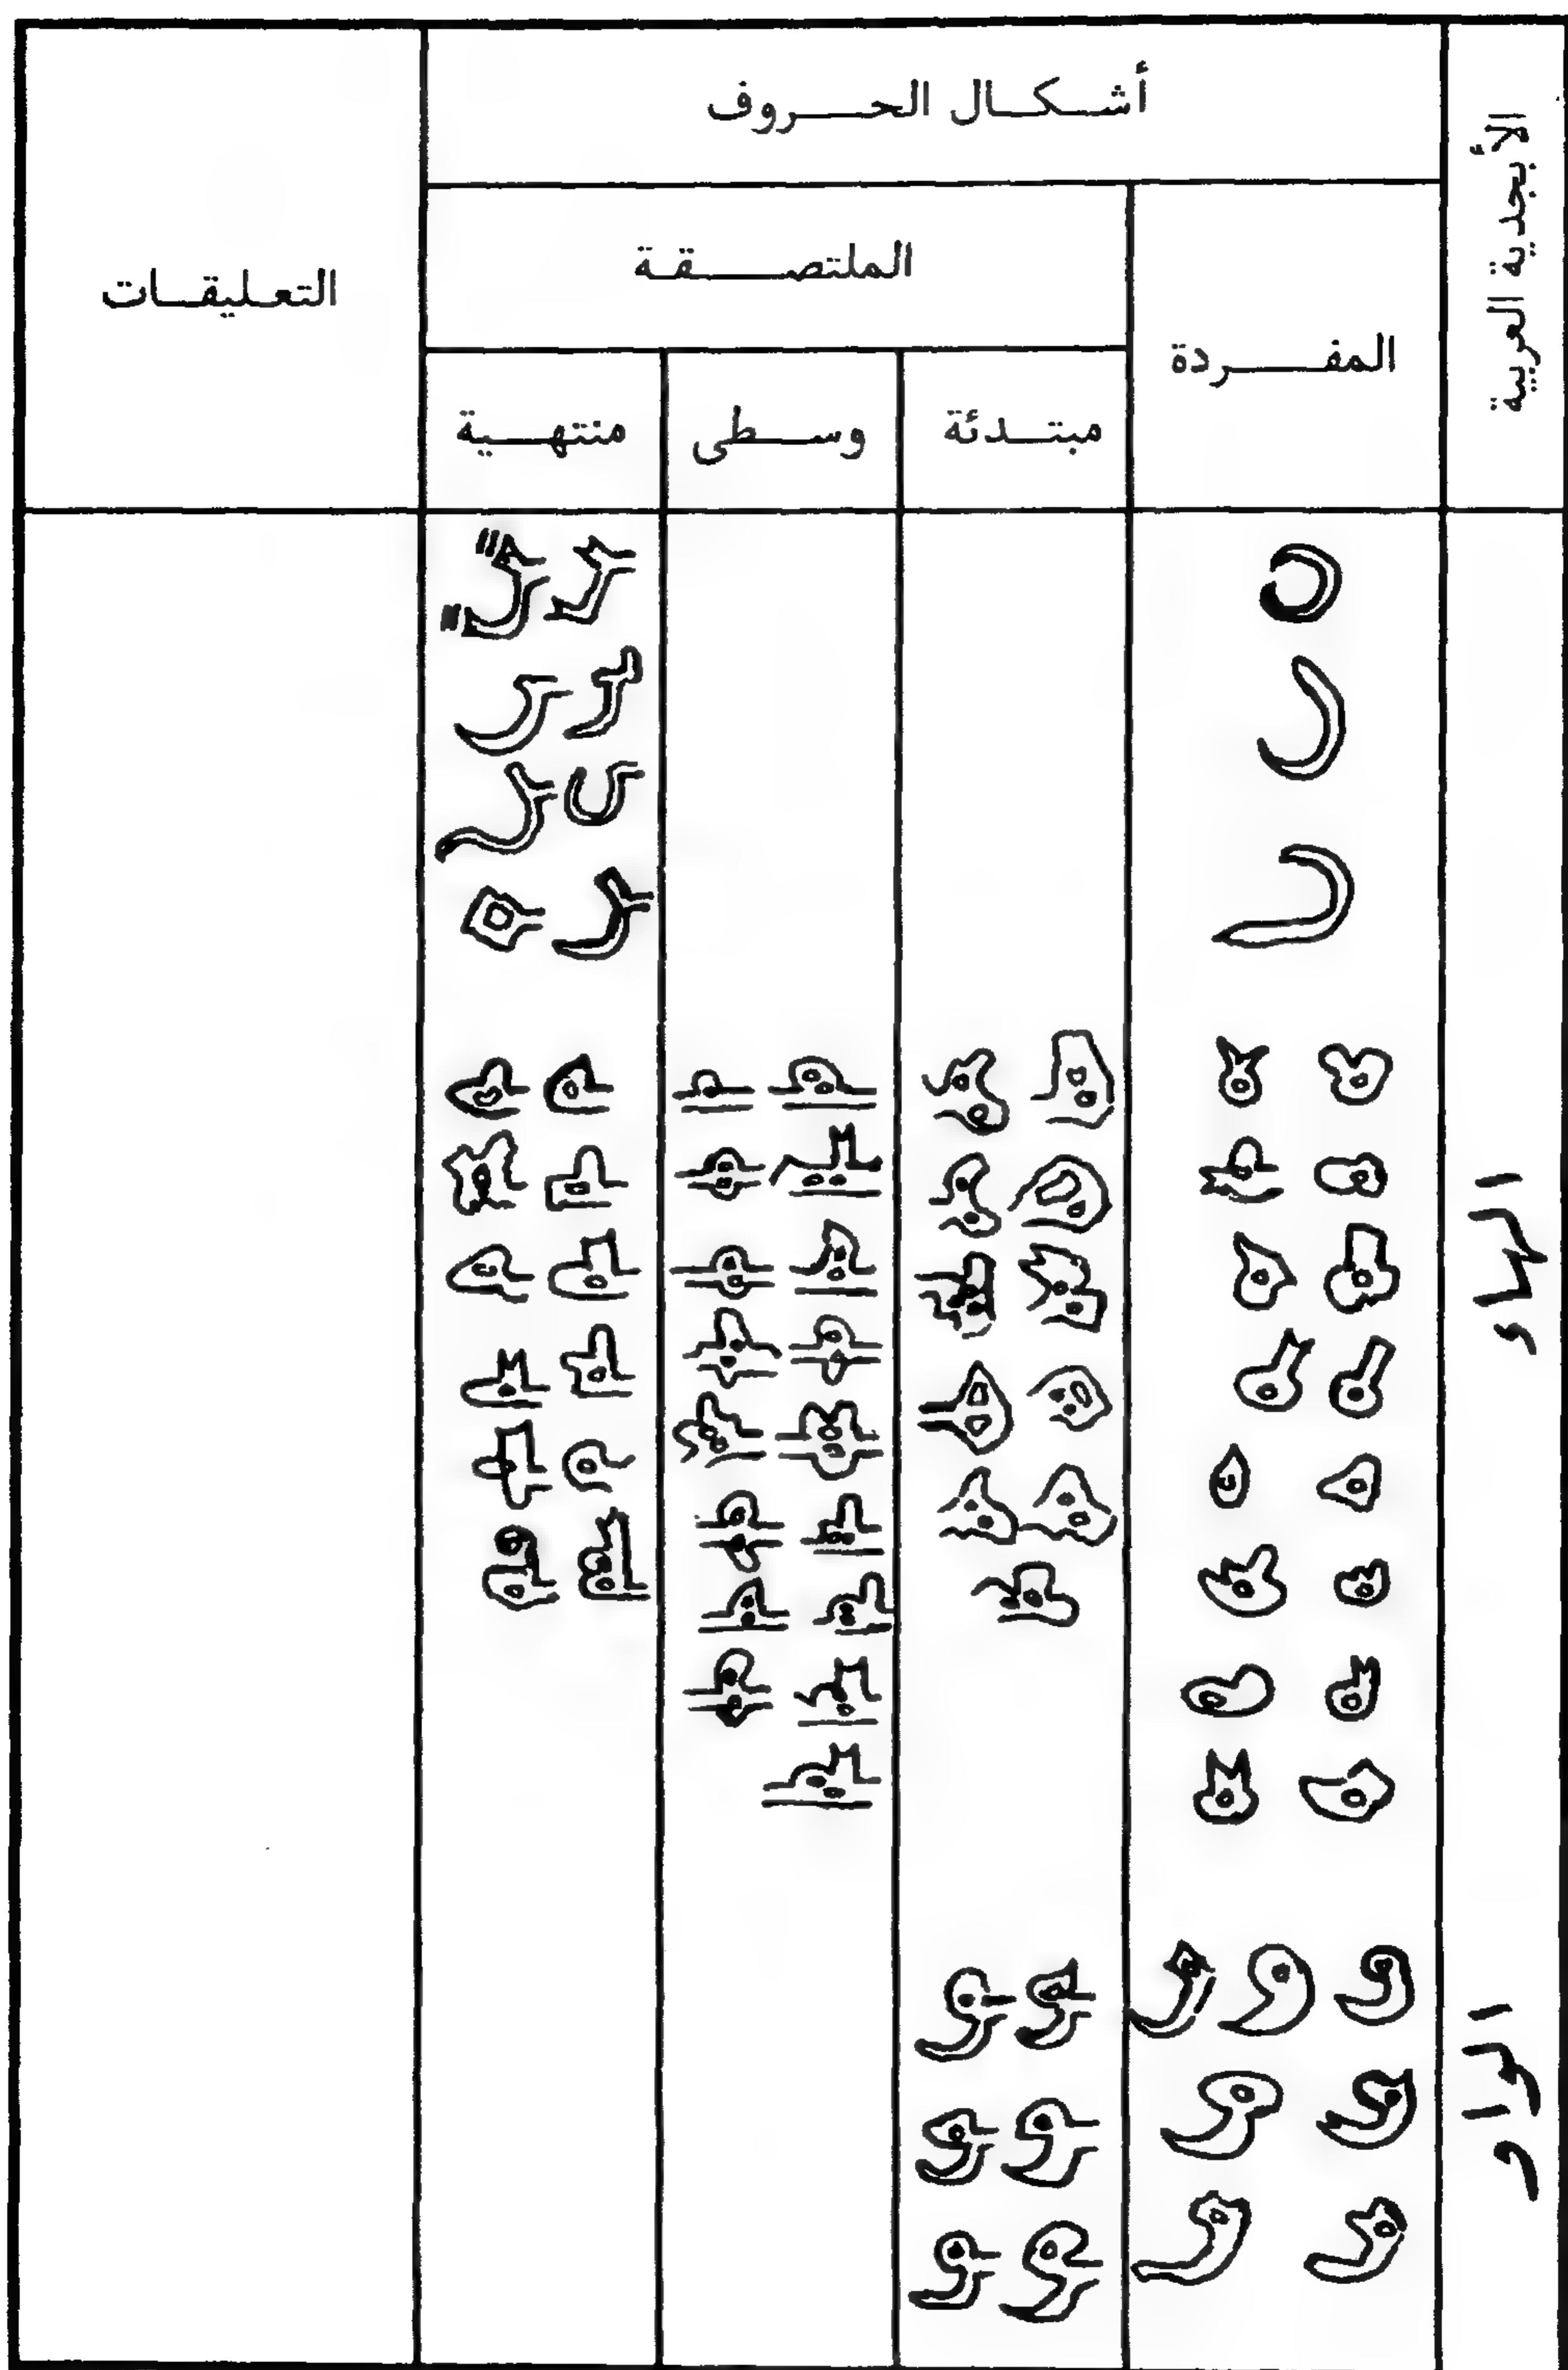 الأبجدية العربية
أشكال الحروف
التعليقات
المفردة
الملتصقة
مبتدئة
وسطى
منتهية
الهاء
الواو